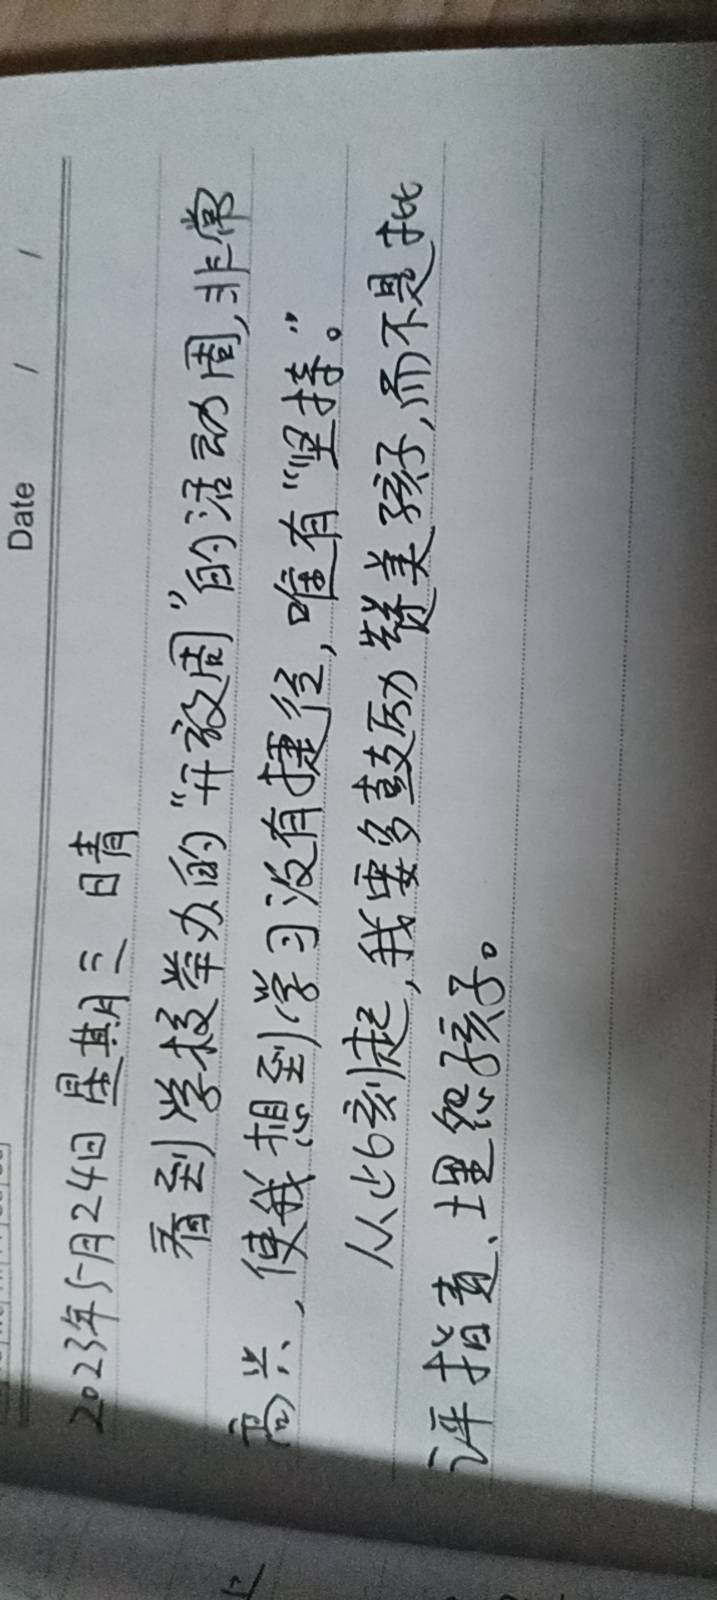 Date / /
2023年5月24日 星期三 日晴
看到学校举办的“开放周”的活动周,非常
高兴、使我想到学习没有捷径,唯有“坚持。”
从此刻起,我要多鼓励赞美孩子,而不是批
评指责、埋怨孩子。